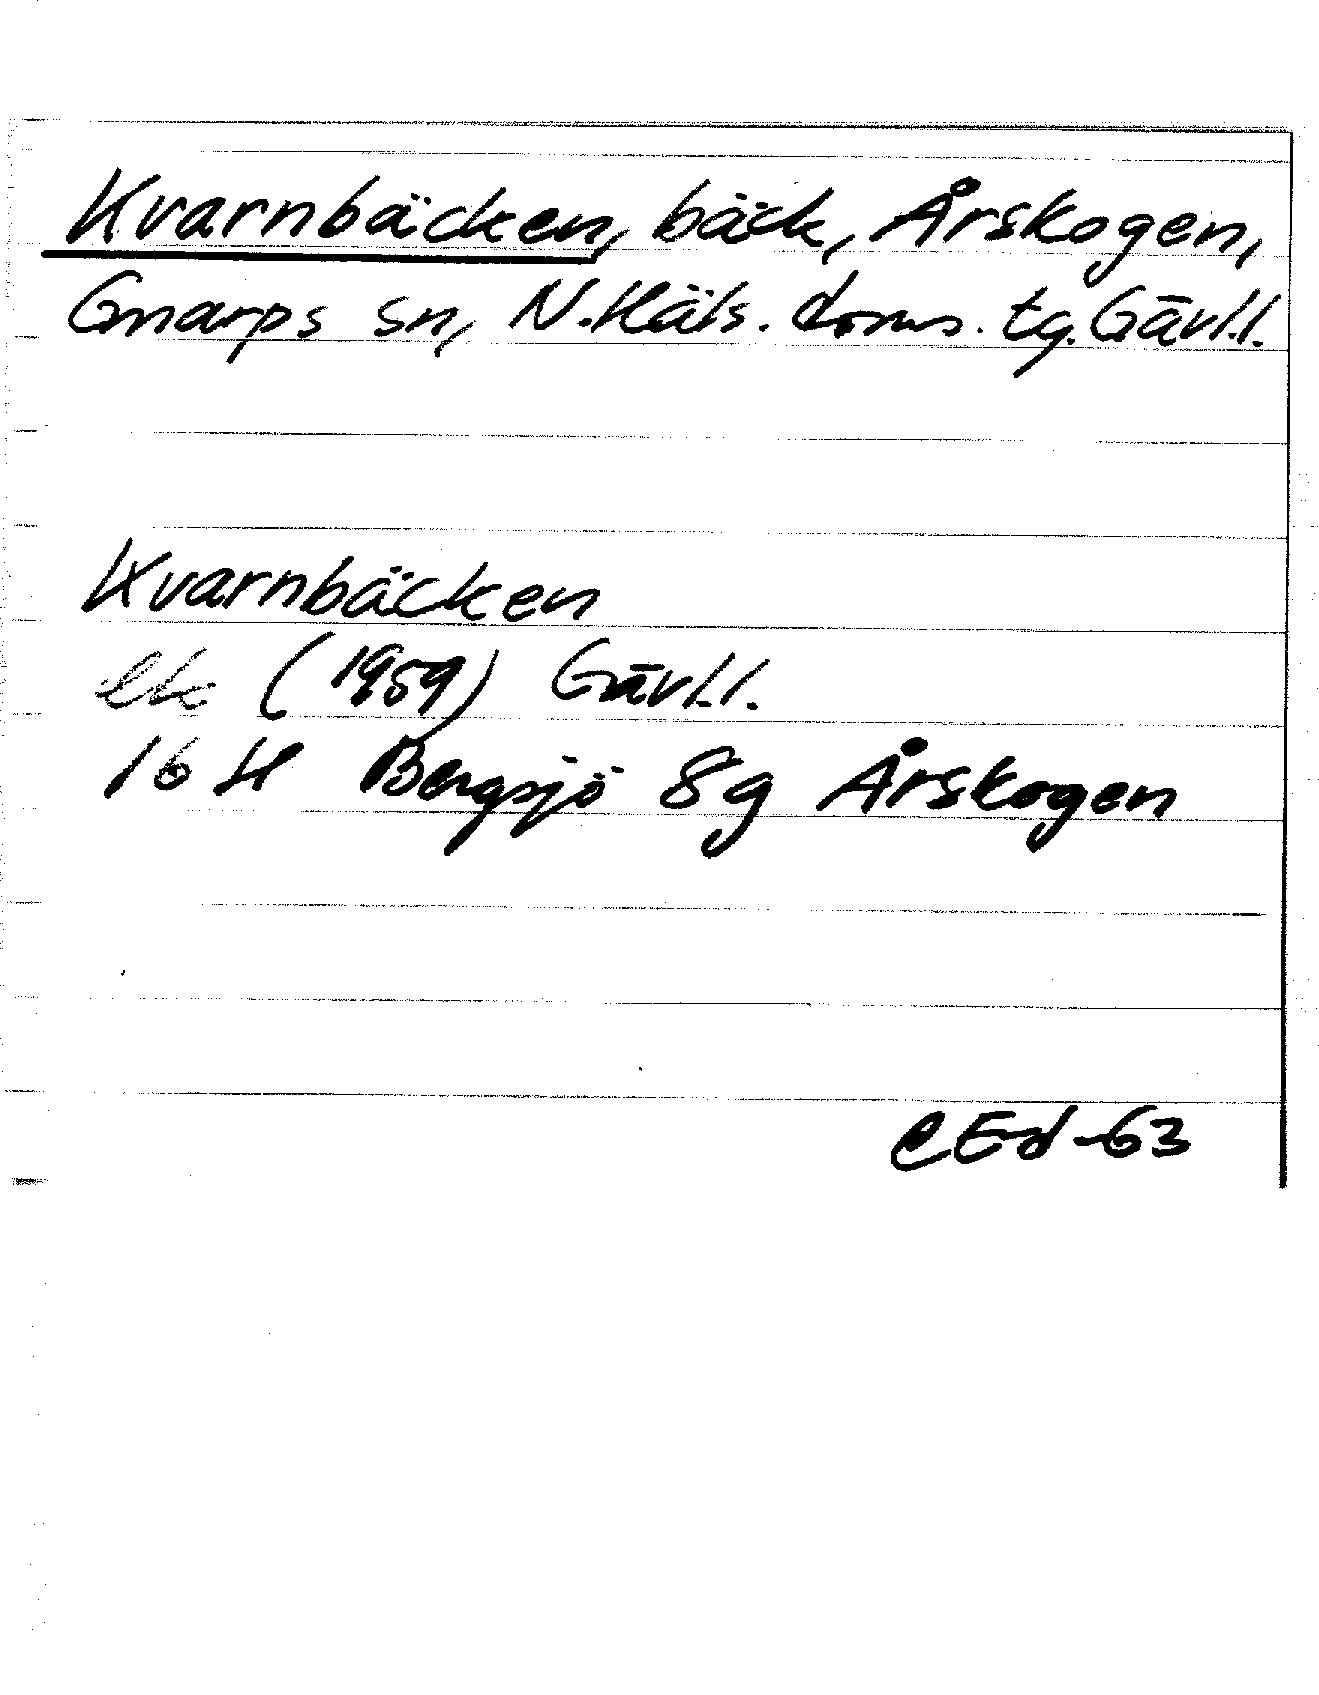 Kvarnbäcken, bäck, Årskogen,
Gnarps sn, N. Häls. doms. tg. Gävl.l.
Kvarnbäcken
ek (1959) Gävl.l.
16 H Bergsjö 8g Årskogen
CEd -63